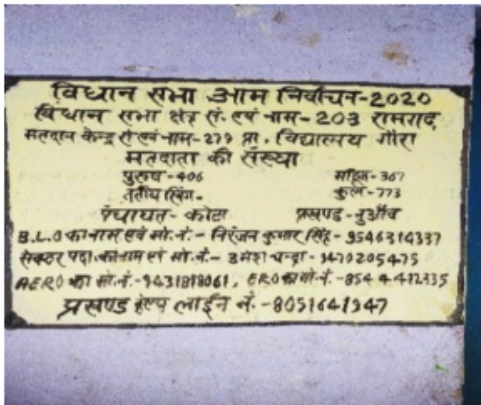 विधान सभा आम निर्वाचन-2020
विधान सभा क्षेत्र सं. एवं नाम-203 रामगढ़
मतदान केन्द्र सं एवं नाम-279 प्रा. विद्यालय गौरा
मतदाता की संख्या
पुरुष-406 महिला-367
तृतीय लिंग- कुल-773
पंचायत-कोटा प्रखण्ड-नुआँव
B.L.O का नाम एवं मो.नं.-निरंजन कुमार सिंह-9546314337
सेक्टर पदा. का नाम एवं मो.नं.-उमेश चन्द्रा-9470205475
AERO का मो.नं.-9431818061, ERO का मो.नं.-8544412335
प्रखण्ड हेल्प लाईन नं.-8051641947